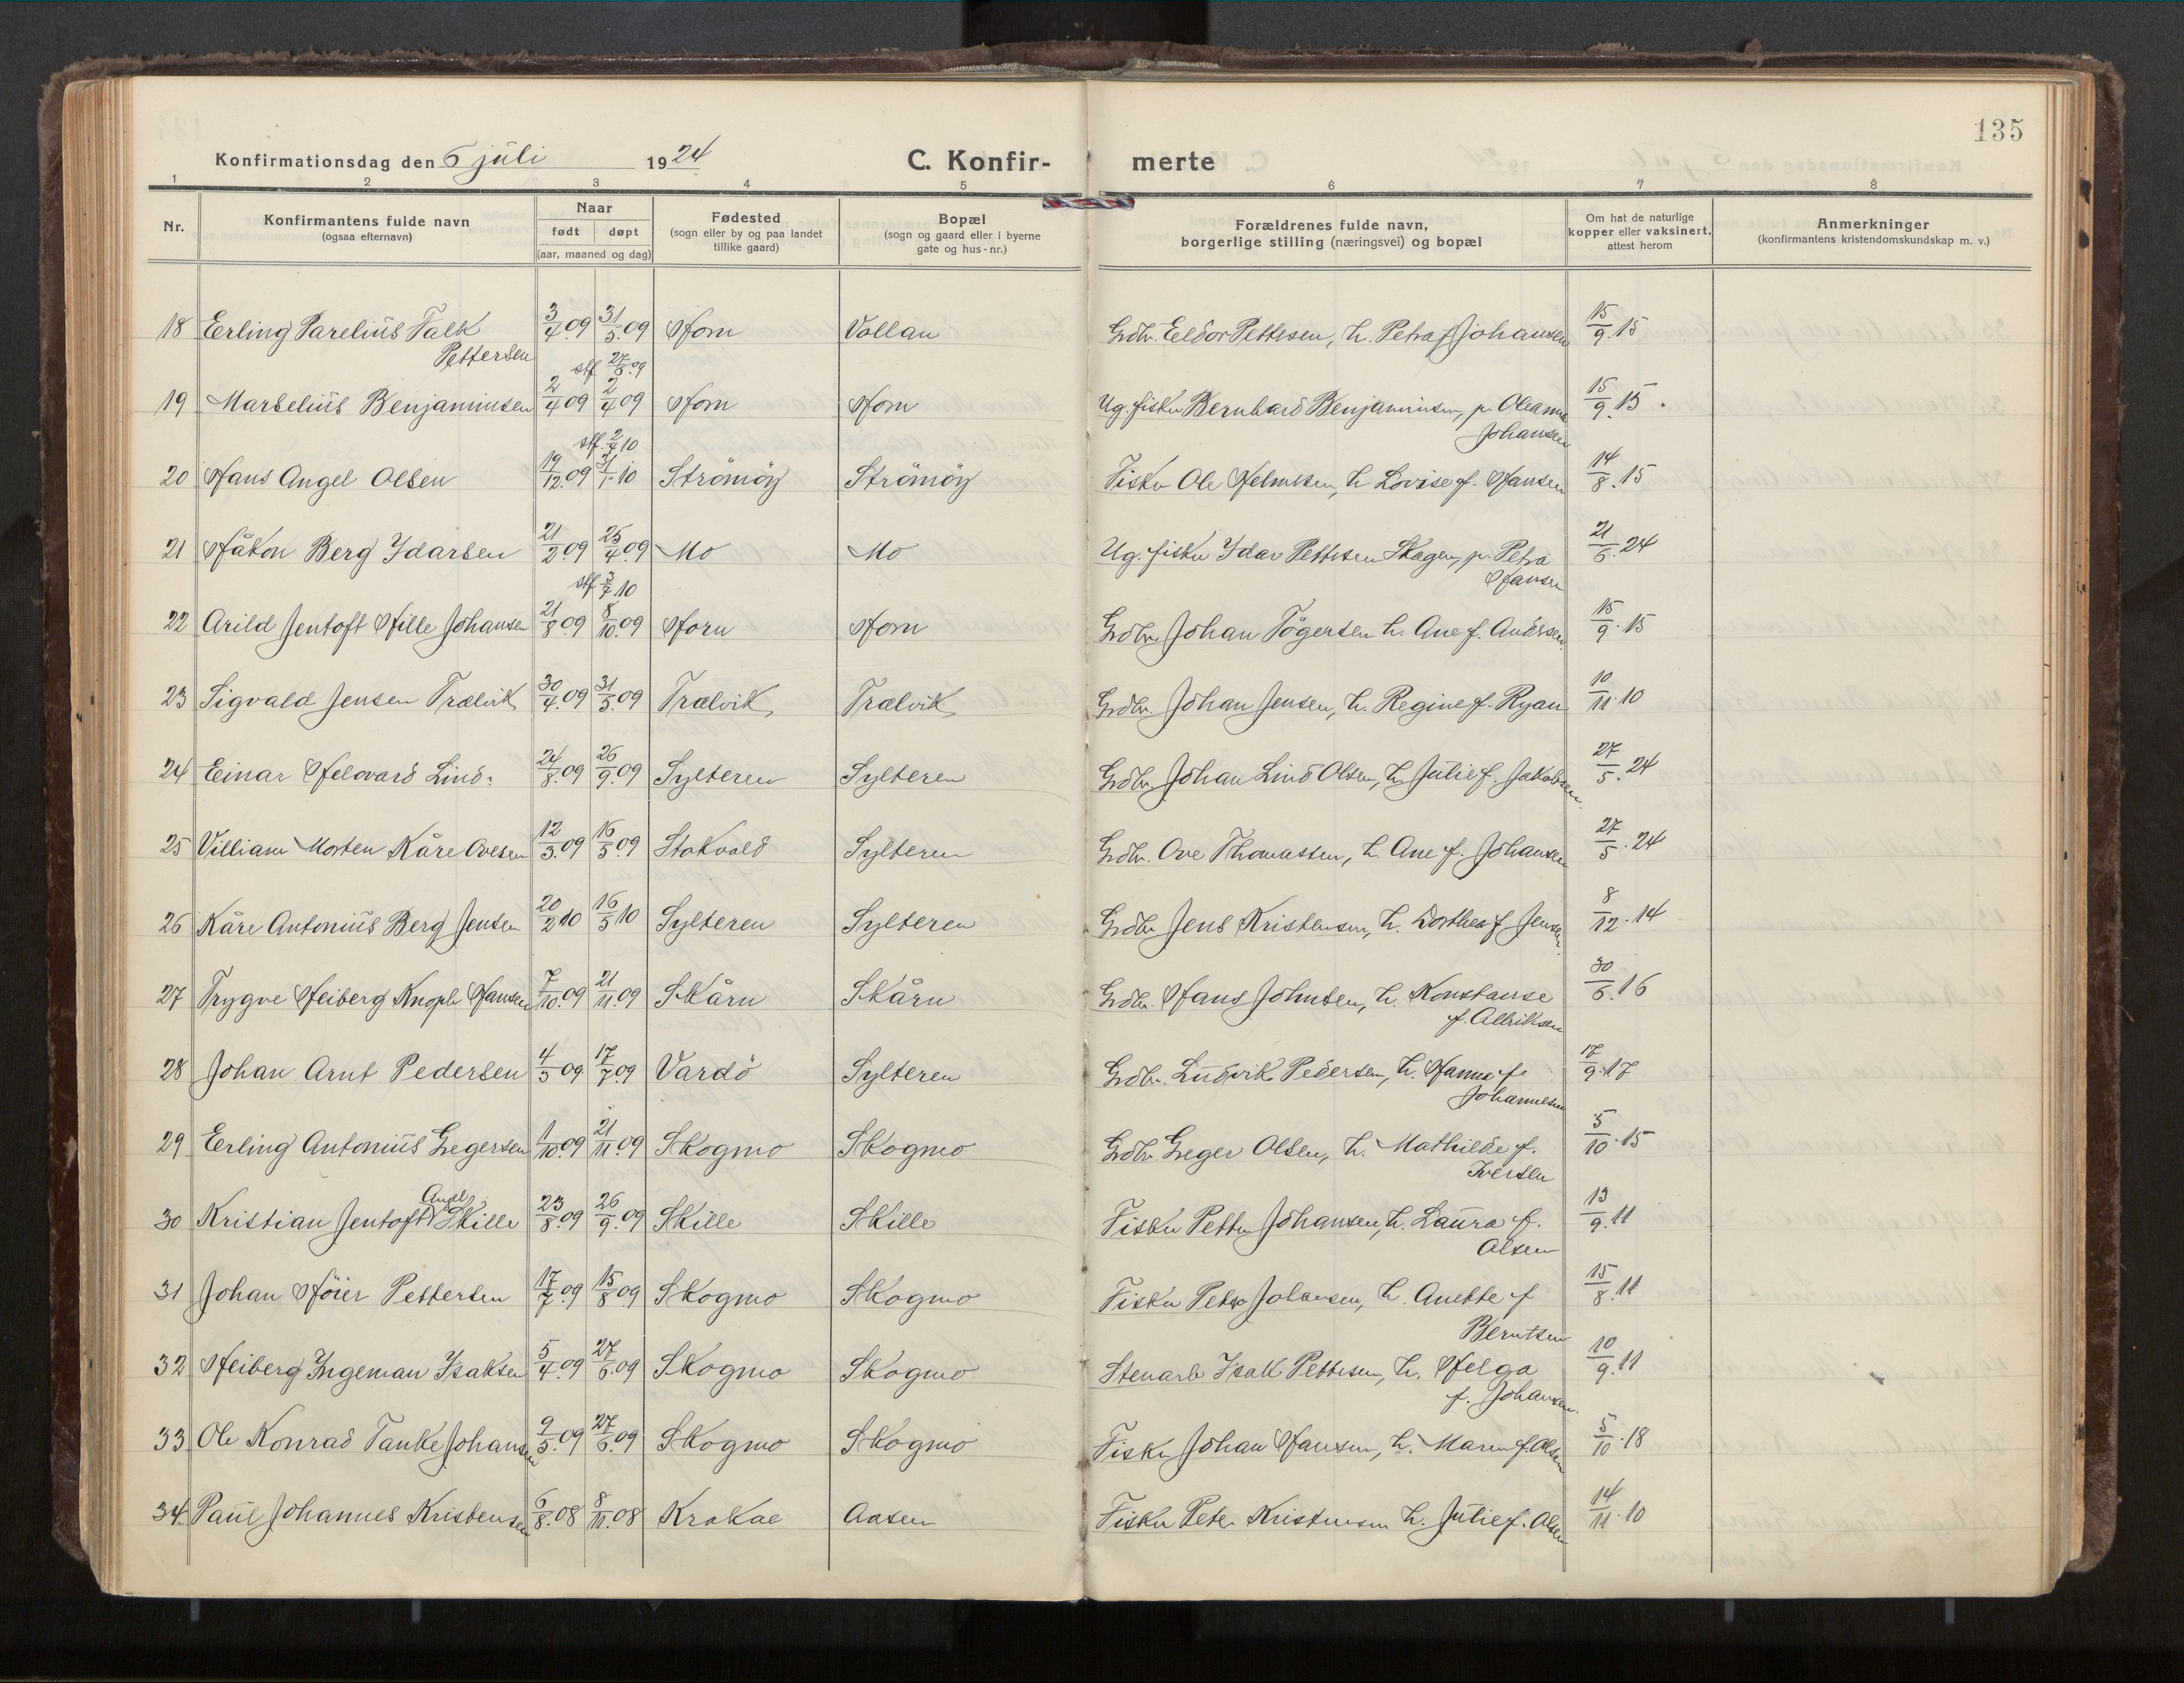 135
Konfirmationsdag den 6 juli 1924 C. Konfir- merte
1 2 3 4 5 6 7 8
Nr. Konfirmantens fulde navn (ogsaa efternavn) Naar født døpt (aar, maaned og dag) Fødested (sogn eller by og paa landet tillike gaard) Bopæl (sogn og gaard eller i byerne gate og hus-nr.) Forældrenes fulde navn, borgerlige stilling (næringsvei) og bopæl Om hat de naturlige kopper eller vaksinert, attest herom Anmerkninger (konfirmantens kristendomskundskap m. v.)
18 Erling Parelius Falk 3/4.09 31/5.09 Horn Vollan Grdbr. Eeldor Pettersen, h. Petra f. Johansen 15/9.15
Pettersen
stf 27/6.09
19 Marselius Benjaminsen 2/4 09 2/4 09 Horn Horn Ug. fisker Bernhard Benjaminsen, p. Oleanna 15/9.15
Johansen
stf. 2/7 10
20 Hans Angel Olsen 19/12.09 31/1.10 Strömöy Strömöy Fisker Ole Helmesen, h. Lovise f. Hansen 14/8.15
21 Håkon Berg Idarsen 21/2.09 25/4.09 Mo Mo Ug. fisker Idar Pettersen Skagen, p. Petra 21/6.24
Hansen
stf 3/7.10
22 Arild Jentoft Hille Johansen 21/8.09 8/10.09 Horn Horn Grdbr. Johan Tögersen h. Ane f. Andersen 15/9.15
23 Sigvald Jensen Trælvik 30/4.09 31/5.09 Trælvik Trælvik Grdbr. Johan Jensen, h. Regine f. Ryan 10/11.10
24 Einar Helovard Lind 24/8.09 26/9.09 Sylteren Sylteren Grdbr. Johan Lind Olsen, h. Julie f. Jakobsen 27/5.24
25 Villiam Morten Kåre Ovesen 12/3.09 16/5.09 Stokvold Sylteren Grdbr. Ove Thomassen, h. Ane f. Johansen 27/5.24
26 Kåre Antonius Berg Jensen 20/2.10 16/5.10 Sylteren Sylteren Grdbr. Jens Kristensen, h. Dorthea f. Jensen 8/12.14
27 Trygve Heiberg Knoph Hansen 7/10.09 21/11.09 Skårn Skårn Grdbr. Hans Johnsen, h. Konstanse 30/6.16
f. Albriktsen
28 Johan Arnt Pedersen 4/5 09 17/7.09 Vardö Sylteren Grdbr. Ludvik Pedersen, h. Hanna f. 17/9.17
Johannesen
29 Erling Antonius Gregersen 1/10.09 21/11.09 Skogmo Skogmo Grdbr. Greger Olsen, h. Mathilde f. 5/10.15
Iversen
Angel
30 Kristian Jentoft Skille 23/8.09 26/9.09 Skille Skille Fisker Petter Johansen, h. Laura f. 13/9.11
Olsen
31 Johan Höier Pettersen 17/7.09 15/8.09 Skogmo Skogmo Fisker Peter Johansen, h. Anette f 15/8.11
Berntsen
32 Heiberg Ingeman Isaksen 5/4.09 27/6.09 Skogmo Skogmo Stenarb Isak Pettersen, h. Helga 10/9.11
f. Johansen
33 Ole Konrad Tanke Johansen 9/5.09 27/6.09 Skogmo Skogmo Fisker Johan Hansen, h. Maren f. Olsen 5/10.18
34 Paul Johannes Kristensen 6/8.08 8/11.08 Krokae Aasen Fisker Peter Kristensen h. Julie f. Olsen 14/11.10